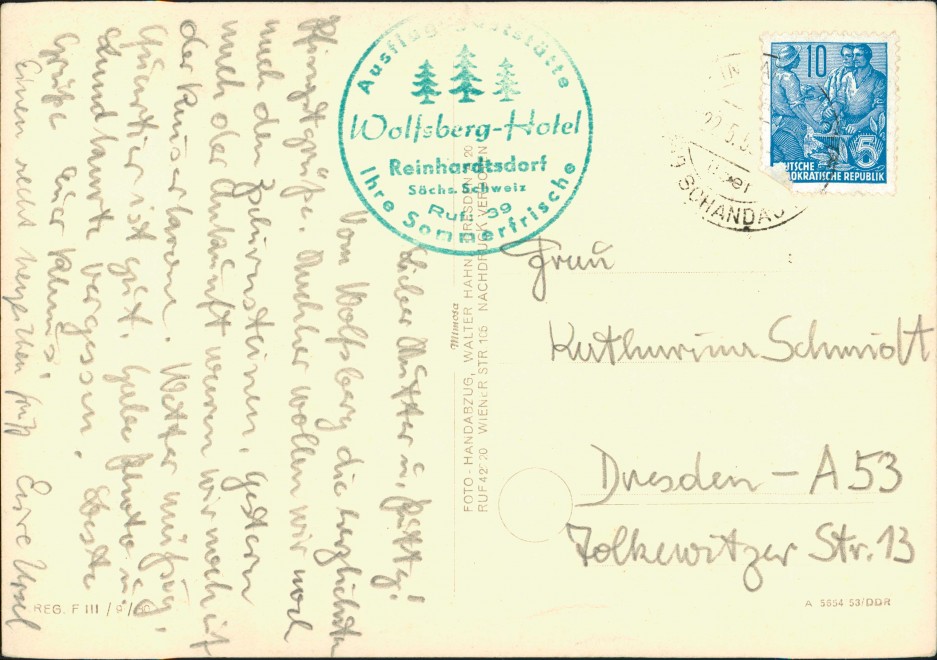 Ausflugsgaststätte
Wolfsberg-Hotel
Reinhardtsdorf
Sächs. Schweiz
Ruf: 39
Ihre Sommerfrische
10
5
DEUTSCHE
DEMOKRATISCHE REPUBLIK
22.5.
über
SCHANDAU
Liebe Mutter u.
Vom Wolfsberg die herzlichsten
Pfingstgrüße. Nachher wollen wir noch
nach den Zschirnsteinen, gestern
nach der Ankunft waren wir noch auf
der Kaiserkrone. Wetter mäßig,
Quartier ist gut. Habe
Landkarte vergessen. Beste
Grüße Euer
Einen recht herzlichen Gruß Eure Ursel
Mimosa
FOTO-HANDABZUG, WALTER HAHN, DRESDEN A 20
RUF 42220 WIENER STR 105 NACHDRUCK VERBOTEN
Frau
Katharina Schmidt
Dresden-A53
Tolkewitzer Str. 13
REG. F III / 9 / 60
A 5654 53/DDR